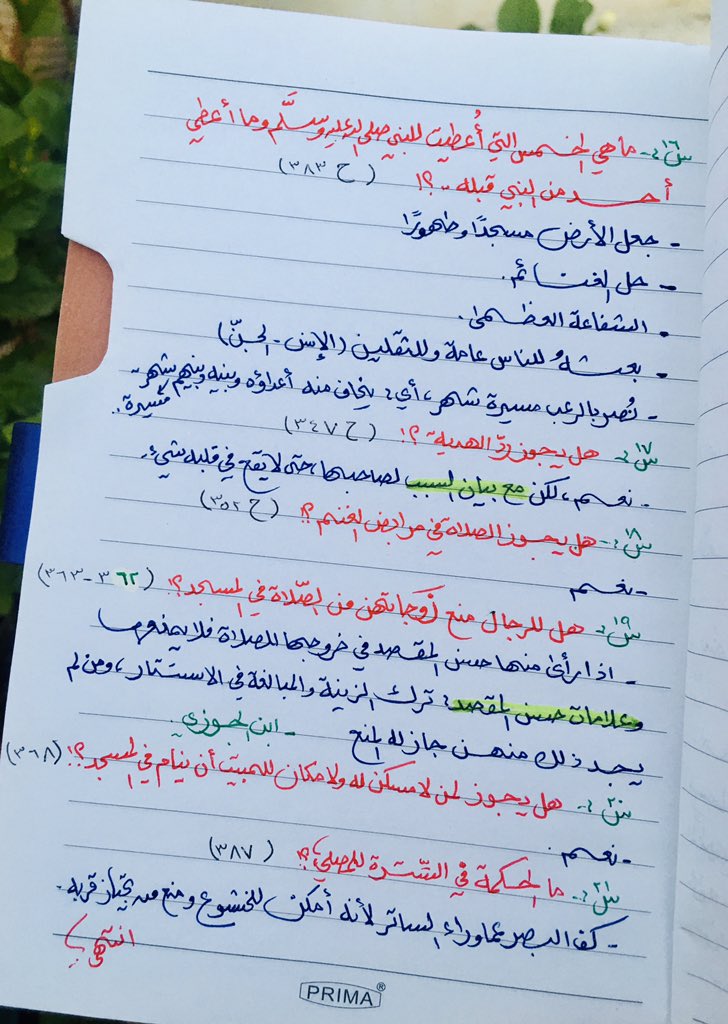 س١٦:- ما هي الخمس التي أُعطيت للنبي صلى الله عليه وسلَّم وما أعطي
أحد من النبي قبله ..؟! (ح ٣٨٣)
- جعل الأرض مسجدًا وطهورًا
- حل الغنائم.
- الشفاعة العظمى.
- بعثهُ للناس عامة وللثقلين (الإنس - الجنّ)
- نُصر بالرعب مسيرة شهر، أي: يخاف منه أعداؤه وبينه وبينهم شهر
مسيرة.
س١٧:- هل يجوز ردّ الهدية؟! (ح ٣٤٧)
- نعم، لكن مع بيان السبب لصاحبها، حتى لا يقع في قلبه شيء.
س١٨:- هل يجوز الصلاة في مرابض الغنم؟! (ح ٣٥٢)
- نعم
س١٩:- هل للرجال منع زوجاتهن من الصّلاة في المسجد؟! (٣٦٢-٣٦٣)
- اذا رأى منها حسن المقصد في خروجها للصلاة فلا يمنعها
وعلامات حسن المقصد: ترك الزينة والمبالغة في الاستتار، ومن لم
يجد ذلك منهن جاز له المنع - ابن الجوزي.
س٢٠:- هل يجوز لمن لا مسكن له ولا مكان للمبيت أن ينام في المسجد؟! (٣٦٨)
- نعم.
س٢١:- ما الحكمة في السّترة للمصلي؟! (٣٨٧)
- كف البصر عما وراء الساتر لأنه أمكن للخشوع و منع من يجتاز قربه.
انتهى
PRIMA®